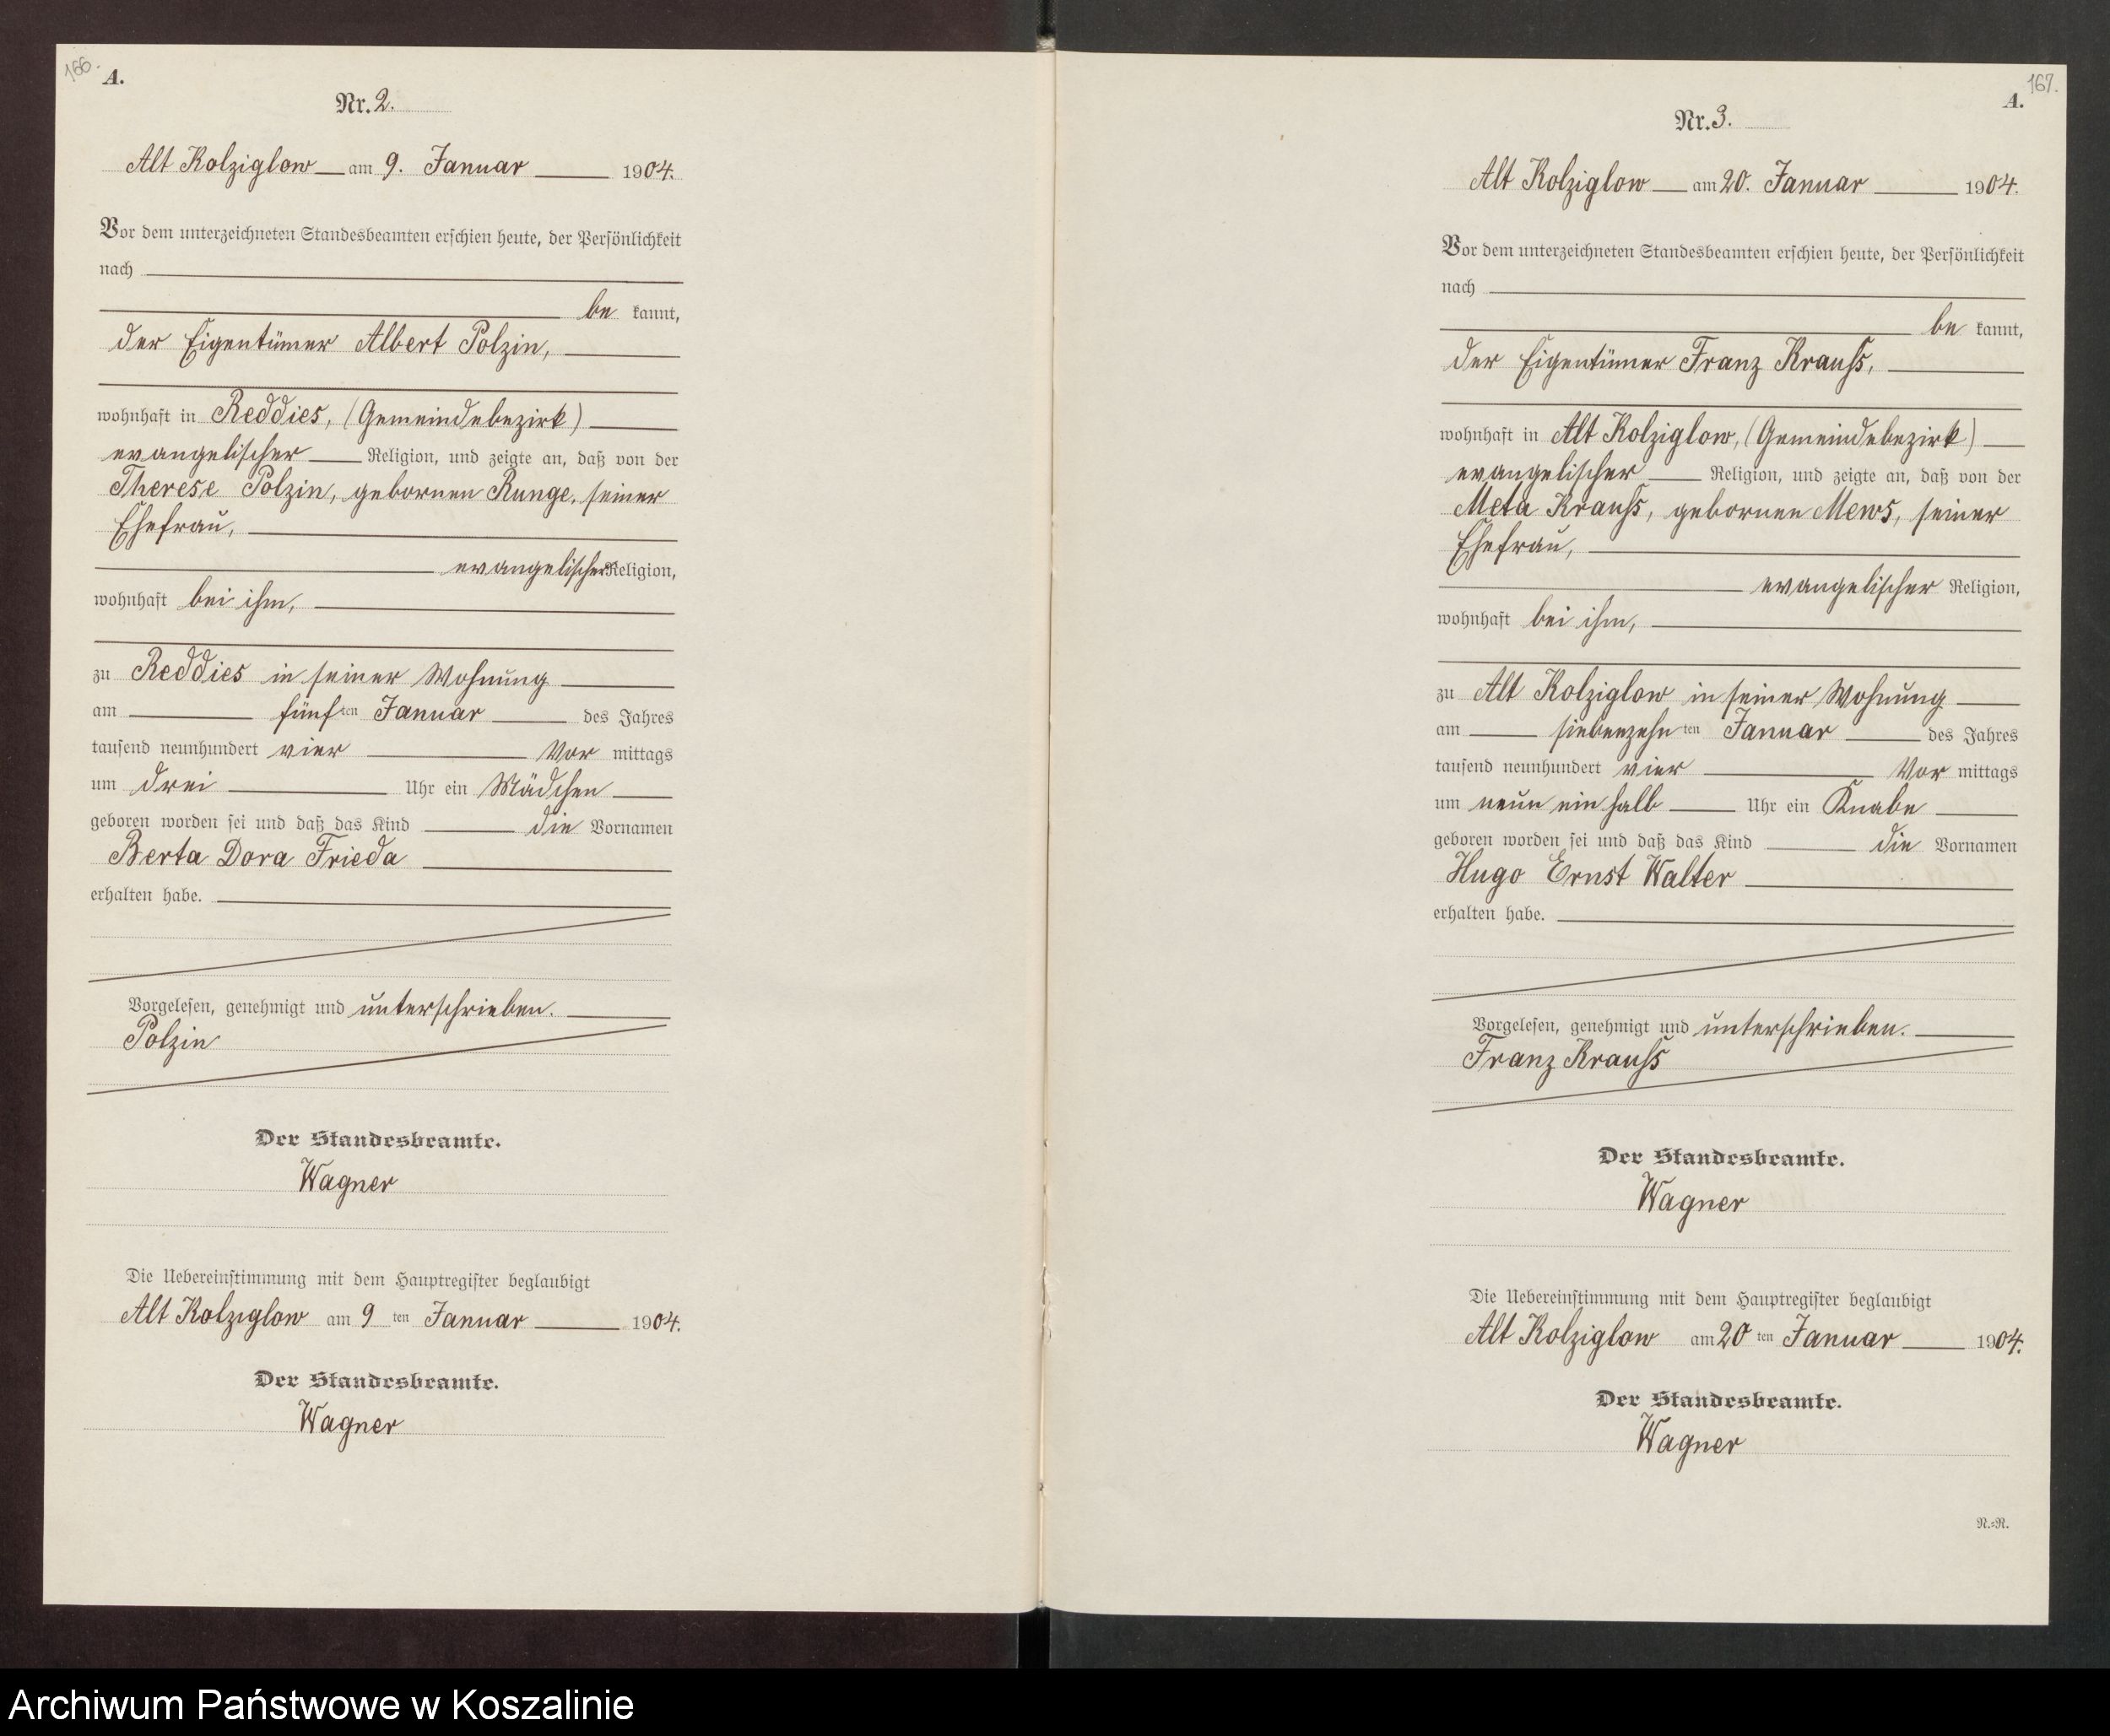 166.
A.
Nr. 2.
Alt Kolziglow am 9. Januar 1904.
Vor dem unterzeichneten Standesbeamten erschien heute, der Persönlichkeit
nach
be kannt,
der Eigentümer Albert Polzin,
wohnhaft in Reddies, (Gemeindebezirk)
evangelischer Religion, und zeigte an, daß von der
Therese Polzin, gebornen Runge, seiner
Ehefrau,
evangelischer Religion,
wohnhaft bei ihm,
zu Reddies in seiner Wohnung
am fünf ten Januar des Jahres
tausend neunhundert vier Vor mittags
um drei Uhr ein Mädchen
geboren worden sei und daß das Kind die Vornamen
Berta Dora Frieda
erhalten habe.
Vorgelesen, genehmigt und unterschrieben.
Polzin
Der Standesbeamte.
Wagner
Die Uebereinstimmung mit dem Hauptregister beglaubigt
Alt Kolziglow am 9 ten Januar 1904.
Der Standesbeamte.
Wagner
167.
A.
Nr. 3.
Alt Kolziglow am 20. Januar 1904.
Vor dem unterzeichneten Standesbeamten erschien heute, der Persönlichkeit
nach
be kannt,
der Eigentümer Franz Krauß,
wohnhaft in Alt Kolziglow, (Gemeindebezirk)
evangelischer Religion, und zeigte an, daß von der
Meta Krauß, gebornen Mews, seiner
Ehefrau,
evangelischer Religion,
wohnhaft bei ihm,
zu Alt Kolziglow in seiner Wohnung
am siebenzehn ten Januar des Jahres
tausend neunhundert vier Vor mittags
um neun ein halb Uhr ein Knabe
geboren worden sei und daß das Kind die Vornamen
Hugo Ernst Walter
erhalten habe.
Vorgelesen, genehmigt und unterschrieben.
Franz Krauß
Der Standesbeamte.
Wagner
Die Uebereinstimmung mit dem Hauptregister beglaubigt
Alt Kolziglow am 20 ten Januar 1904.
Der Standesbeamte.
Wagner
N.=R.
Archiwum Państwowe w Koszalinie